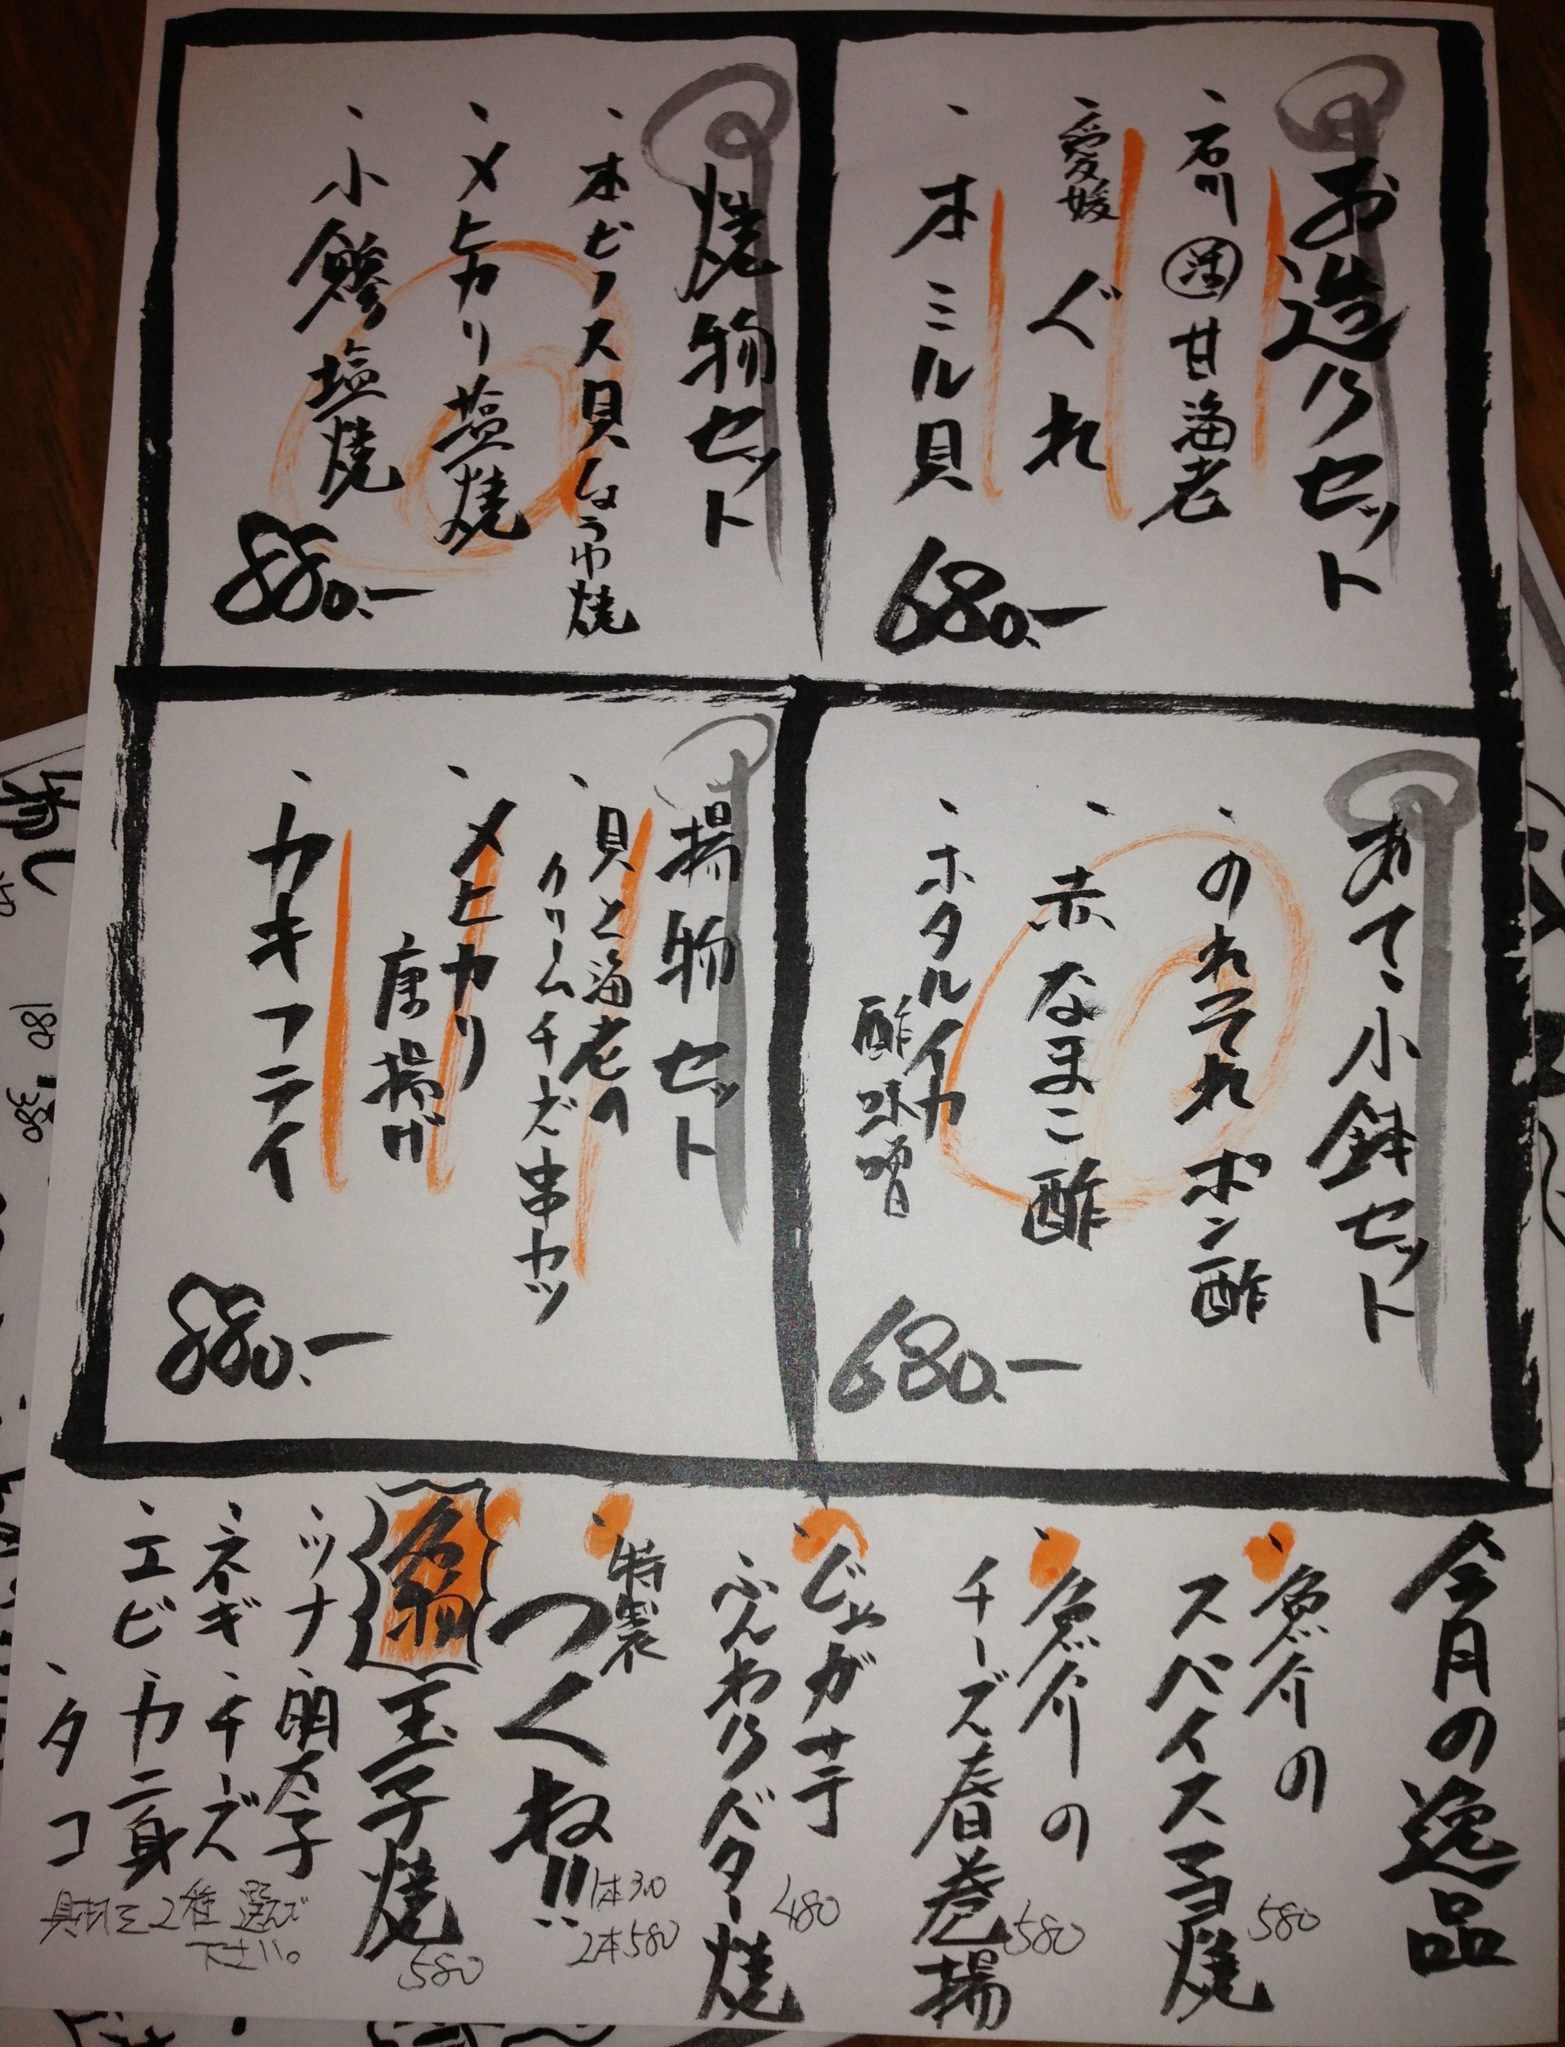 お造りセット
、石川 活 甘海老
、愛媛 ぐれ
、本ミル貝
680.-
焼物セット
、本ビノス貝しょうゆ焼
、メヒカリ塩焼
、小鯵塩焼
880.-
あて、小鉢セット
、のれそれポン酢
、赤なまこ酢
、ホタルイカ
酢味噌
680.-
揚物セット
、貝と海老の
クリームチーズ串カツ
、メヒカリ
唐揚げ
、カキフライ
880.-
今月の逸品
、魚介の
スパイスマヨ焼
580
、魚介の
チーズ春巻揚
580
、じゃが芋
ふんわりバター焼
480
、特製
つくね!!
1本300
2本580
名物
玉子焼
580
、ツナ、明太子
、ネギ、チーズ
、エビ、カニ身
、タコ
具材を2種選んで
下さい。
180
380